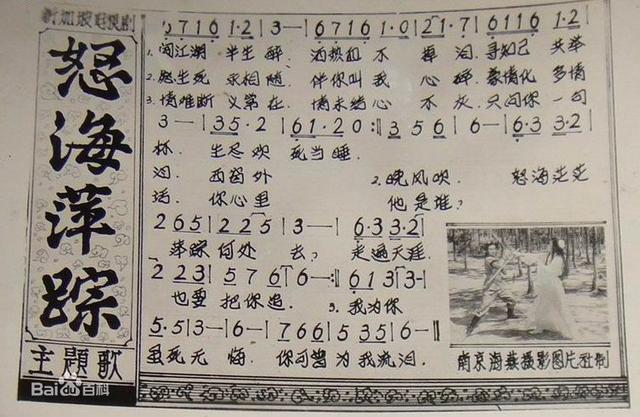 新加坡电视剧
怒海萍踪
主题歌
6716 1·2 | 3 — | 6716 1·0 | 2·1·7 | 6116 1·2
1. 闯江湖 半生醉. 洒热血 不 掉泪. 寻知己 共举
2. 愁生死 永相随. 伴你叫我 心碎. 豪情化 多情
3. 情难断 义常在. 情未绝 心 不灰. 只问你 一句
3 — | 35·2 | 61·20 :|| 3 5 6 | 6 — | 6·3 3·2 |
杯. 生尽欢 死当睡.
泪. 西窗外 2. 晚风吹. 怒海茫茫
话. 你心里 他是谁?
2 65 | 2 25 | 3 — | 6·3 3·2 |
萍踪何处 去? 走遍天涯
2 223 | 5 7 6 6 | 6 — :|| 6 1 3 3 — |
也要 把你追. 3. 我为你
5·5 3 — | 6 — | 766 | 5 35 | 6 — ||
虽死无悔. 你可曾为我流泪.
南京海燕摄影图片社制
Bai百科